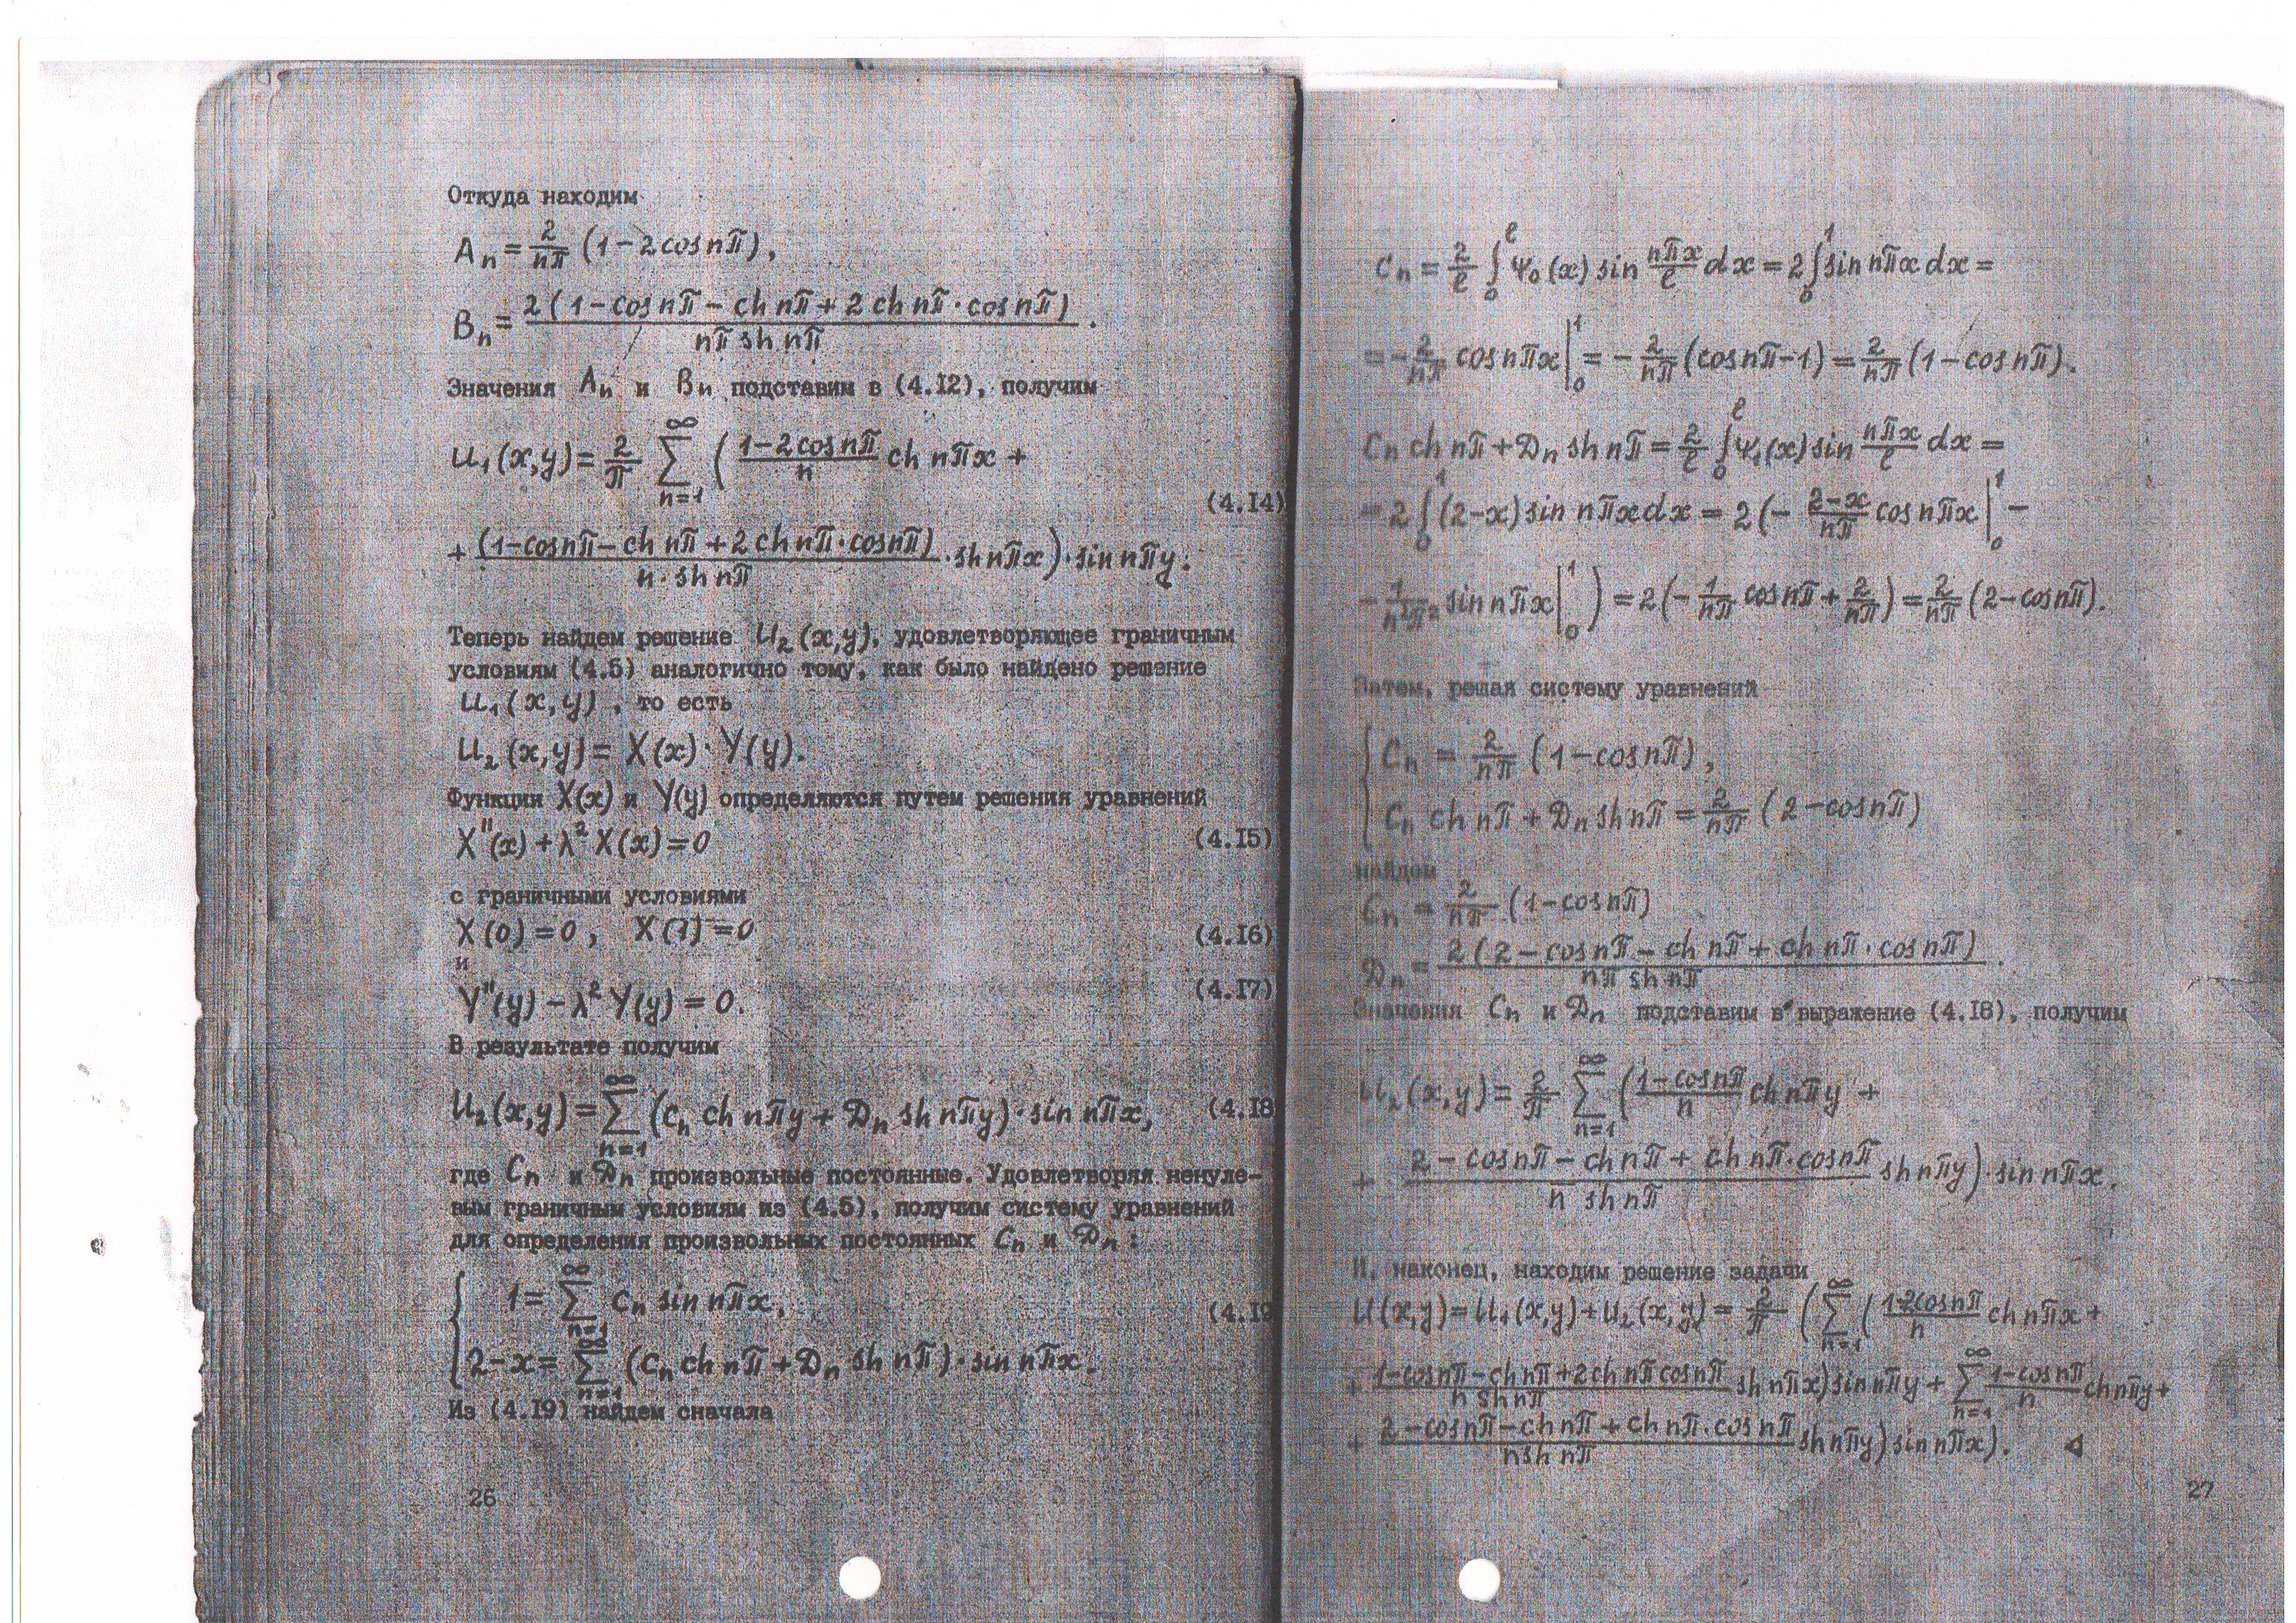 Откуда находим
Aₙ = 2/nπ (1 – 2 cos nπ),
Bₙ = 2 (1 – cos nπ – ch nπ + 2 ch nπ · cos nπ) / nπ sh nπ .
Значения Aₙ и Bₙ подставим в (4.I2), получим
U₁(x,y) = 2/π ∑ₙ₌₁^∞ ( (1–2 cos nπ)/n ch nπx +
(4.I4)
+ (1–cos nπ – ch nπ + 2 ch nπ · cos nπ) / n · sh nπ · sh nπx) · sin nπy.
Теперь найдем решение U₂(x,y), удовлетворяющее граничным
условиям (4.5) аналогично тому, как было найдено решение
U₁(x,y), то есть
U₂(x,y) = X(x) · Y(y).
Функции X(x) и Y(y) определяются путем решения уравнений
X''(x) + λ² X(x) = 0 (4.I5)
с граничными условиями
X(0) = 0, X(1) = 0 (4.I6)
и
Y''(y) – λ² Y(y) = 0. (4.I7)
В результате получим
U₂(x,y) = ∑ₙ₌₁^∞ (Cₙ ch nπy + Dₙ sh nπy) · sin nπx, (4.I8
где Cₙ и Dₙ произвольные постоянные. Удовлетворяя ненуле-
вым граничным условиям из (4.5), получим систему уравнений
для определения произвольных постоянных Cₙ и Dₙ :
{ 1 = ∑ₙ₌₁^∞ Cₙ sin nπx,
(4.I9
2 – x = ∑ₙ₌₁^∞ (Cₙ ch nπ + Dₙ sh nπ) · sin nπx.
Из (4.I9) найдем сначала
26
Cₙ = 2/ℓ ∫₀^ℓ ψ₀(x) sin nπx/ℓ dx = 2 ∫₀¹ sin nπx dx =
= – 2/nπ cos nπx |₀¹ = – 2/nπ (cos nπ – 1) = 2/nπ (1 – cos nπ).
Cₙ ch nπ + Dₙ sh nπ = 2/ℓ ∫₀^ℓ ψ₁(x) sin nπx/ℓ dx =
= 2 ∫₀¹ (2–x) sin nπx dx = 2 (– (2–x)/nπ cos nπx |₀¹ –
– 1/n²π² sin nπx |₀¹ ) = 2 (– 1/nπ cos nπ + 2/nπ) = 2/nπ (2 – cos nπ).
Затем, решая систему уравнений
{ Cₙ = 2/nπ (1 – cos nπ),
Cₙ ch nπ + Dₙ sh nπ = 2/nπ (2 – cos nπ)
найдем
Cₙ = 2/nπ (1 – cos nπ)
Dₙ = 2 (2 – cos nπ – ch nπ + ch nπ · cos nπ) / nπ sh nπ .
Значения Cₙ и Dₙ подставим в выражение (4.I8), получим
U₂(x,y) = 2/π ∑ₙ₌₁^∞ ( (1–cos nπ)/n ch nπy +
+ (2 – cos nπ – ch nπ + ch nπ · cos nπ) / n sh nπ sh nπy) · sin nπx.
И, наконец, находим решение задачи
U(x,y) = U₁(x,y) + U₂(x,y) = 2/π ( ∑ₙ₌₁^∞ ( (1–2cos nπ)/n ch nπx +
+ (1–cos nπ – ch nπ + 2 ch nπ cos nπ) / n sh nπ sh nπx) sin nπy + ∑ₙ₌₁^∞ (1–cos nπ)/n ch nπy +
+ (2 – cos nπ – ch nπ + ch nπ · cos nπ) / n sh nπ sh nπy) sin nπx). ◁
27